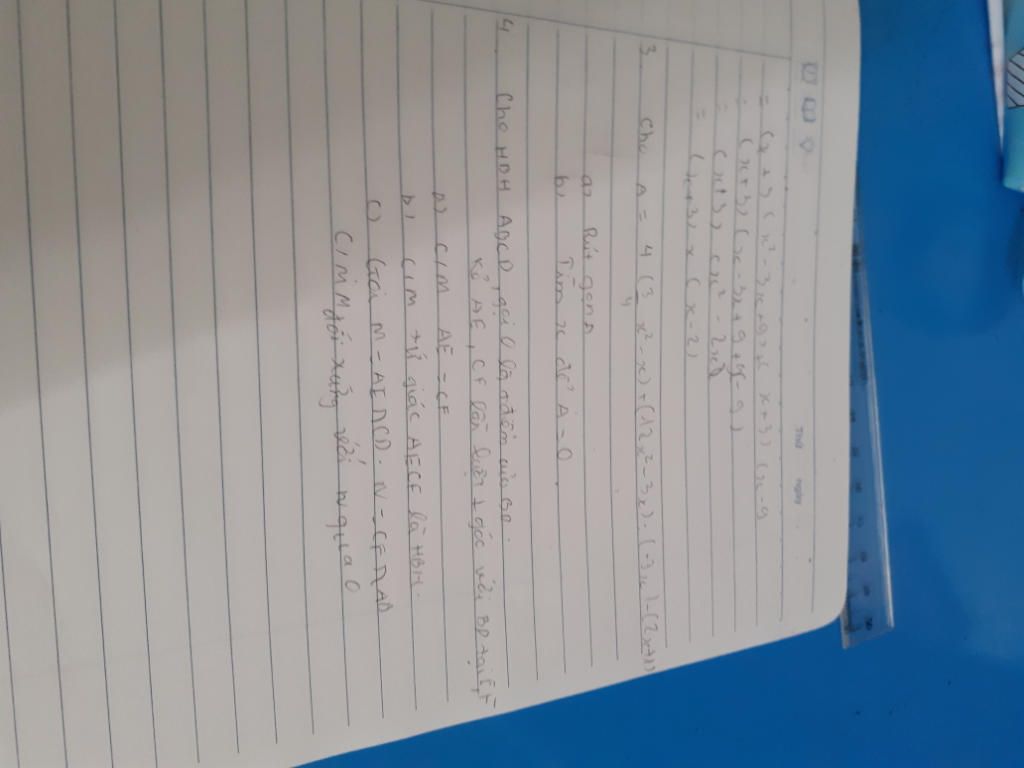 Thứ ngày
= (x + 3) (x² - 3x + 9) + (x + 3) (x - 9
= (x + 3) (x - 3x + 9 + x - 9)
= (x + 3) (x² - 2x)
= (x + 3) x (x - 2)
3 Cho A = 4 (3/4 x² - x) + (12x² - 3x) . (-3x) - (2x+1)
a) Rút gọn A
b) Tìm x để A = 0
4. Cho HBH ABCD, gọi O là của BD.
Kẻ AE, CF lần lượt ⊥ góc với BD tại E, F
a) C/M AE = CF
b) C/M tứ giác AECF là HBH.
c) Gọi M = AE ∩ CD. N = CF ∩ AB
C/M M đối xứng với N qua O